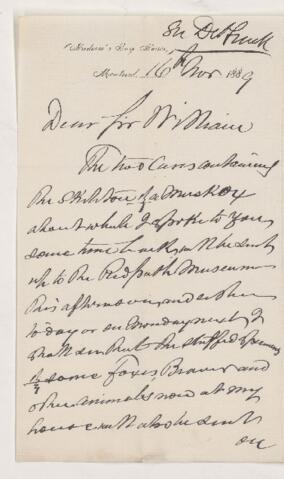 Hudson's Bay House,
Montreal, 16th Nov 1889
Dear Sir William
The two Cases containing
the Skeleton of a Musk Ox
about which I spoke to you
some time back, will be sent
up to the Redpath Museum
this afternoon, and either
to day or on Monday next I
shall send the stuffed
of some Foxes, Beaver and
other animals now at my
house will also be sent
on